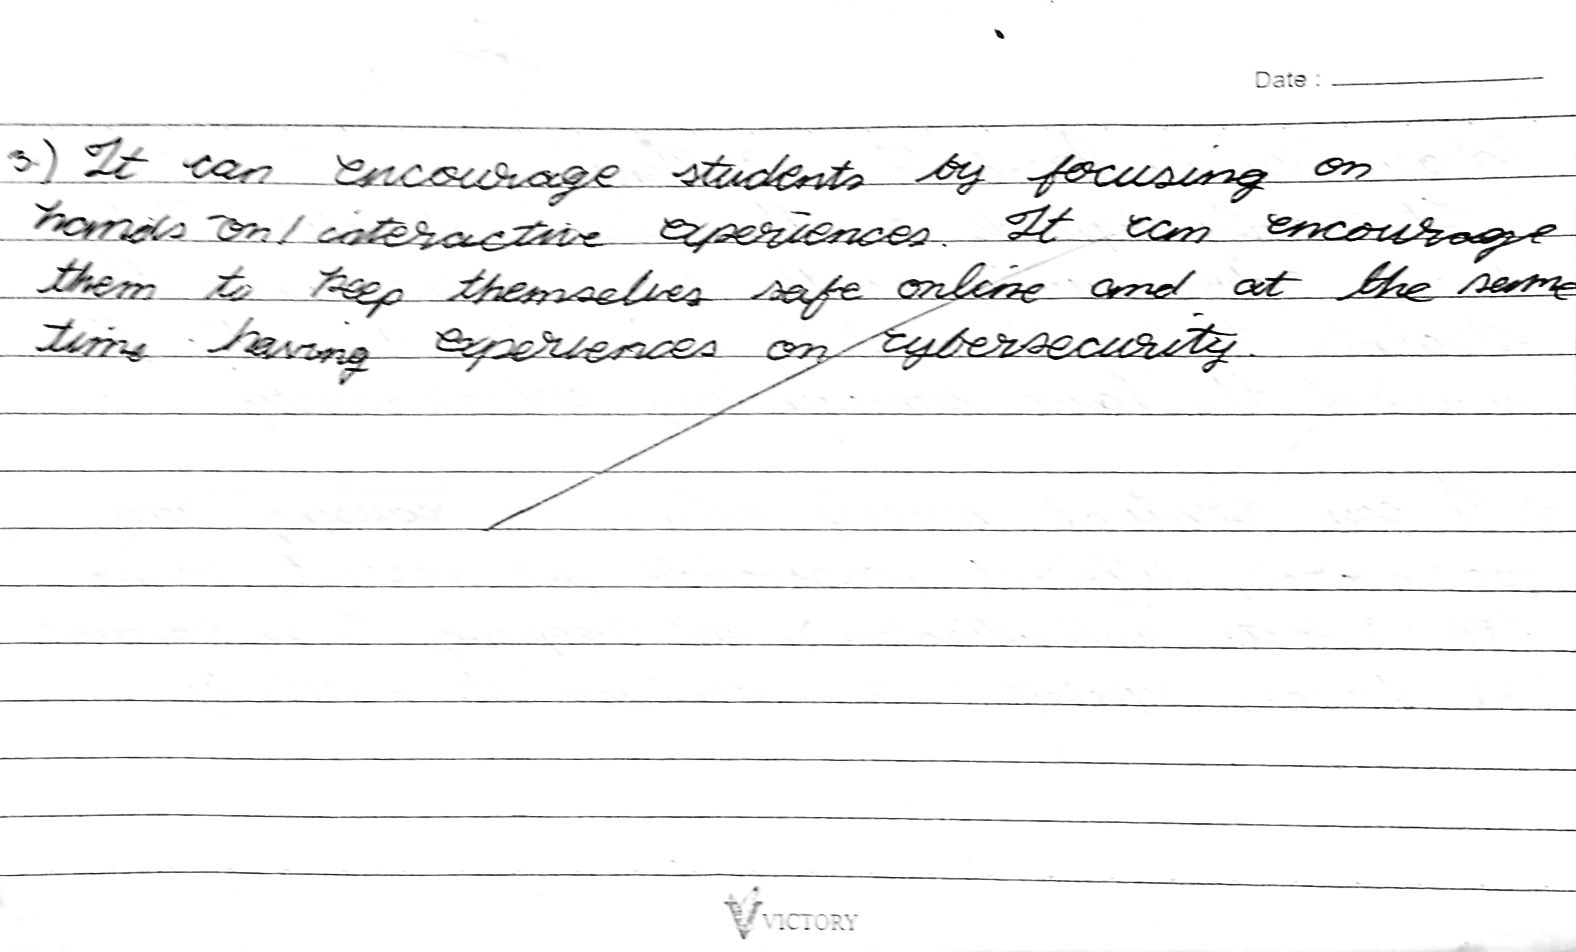 Date :
3.) It can encourage students by focusing on
hands on / interactive experiences. It can encourage
them to keep themselves safe online and at the same
time having experiences on cybersecurity.
VICTORY